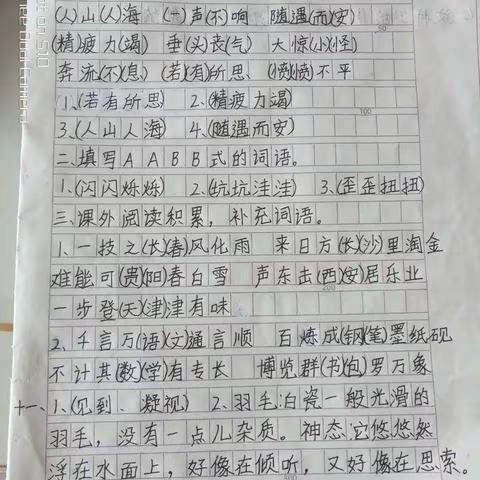 (人)山(人)海 (一)声(不)响 随遇(而)安
(精)疲力(竭) 垂(头)丧(气) 大惊(小)(怪)
奔流(不)(息) (若)(有)所思 (愤)(愤)不平
1、(若有所思) 2、(精疲力竭)
3、(人山人海) 4、(随遇而安)
二、填写AABB式的词语。
1、(闪闪烁烁) 2、(坑坑洼洼) 3、(歪歪扭扭)
三、课外阅读积累,补充词语。
1、一技之(长)(春)风化雨 来日方(长)(沙)里淘金
难能可(贵)(阳)春白雪 声东击(西)(安)居乐业
一步登(天)(津)津有味
2、千言万(语)(文)通言顺 百炼成(钢)(笔)墨纸砚
不计其(数)(学)有专长 博览群(书)(包)罗万象
十一、1、(见到、凝视) 2、羽毛:白瓷一般光滑的
羽毛,没有一点儿杂质。神态:它悠悠然
浮在水面上,好像在倾听,又好像在思索。